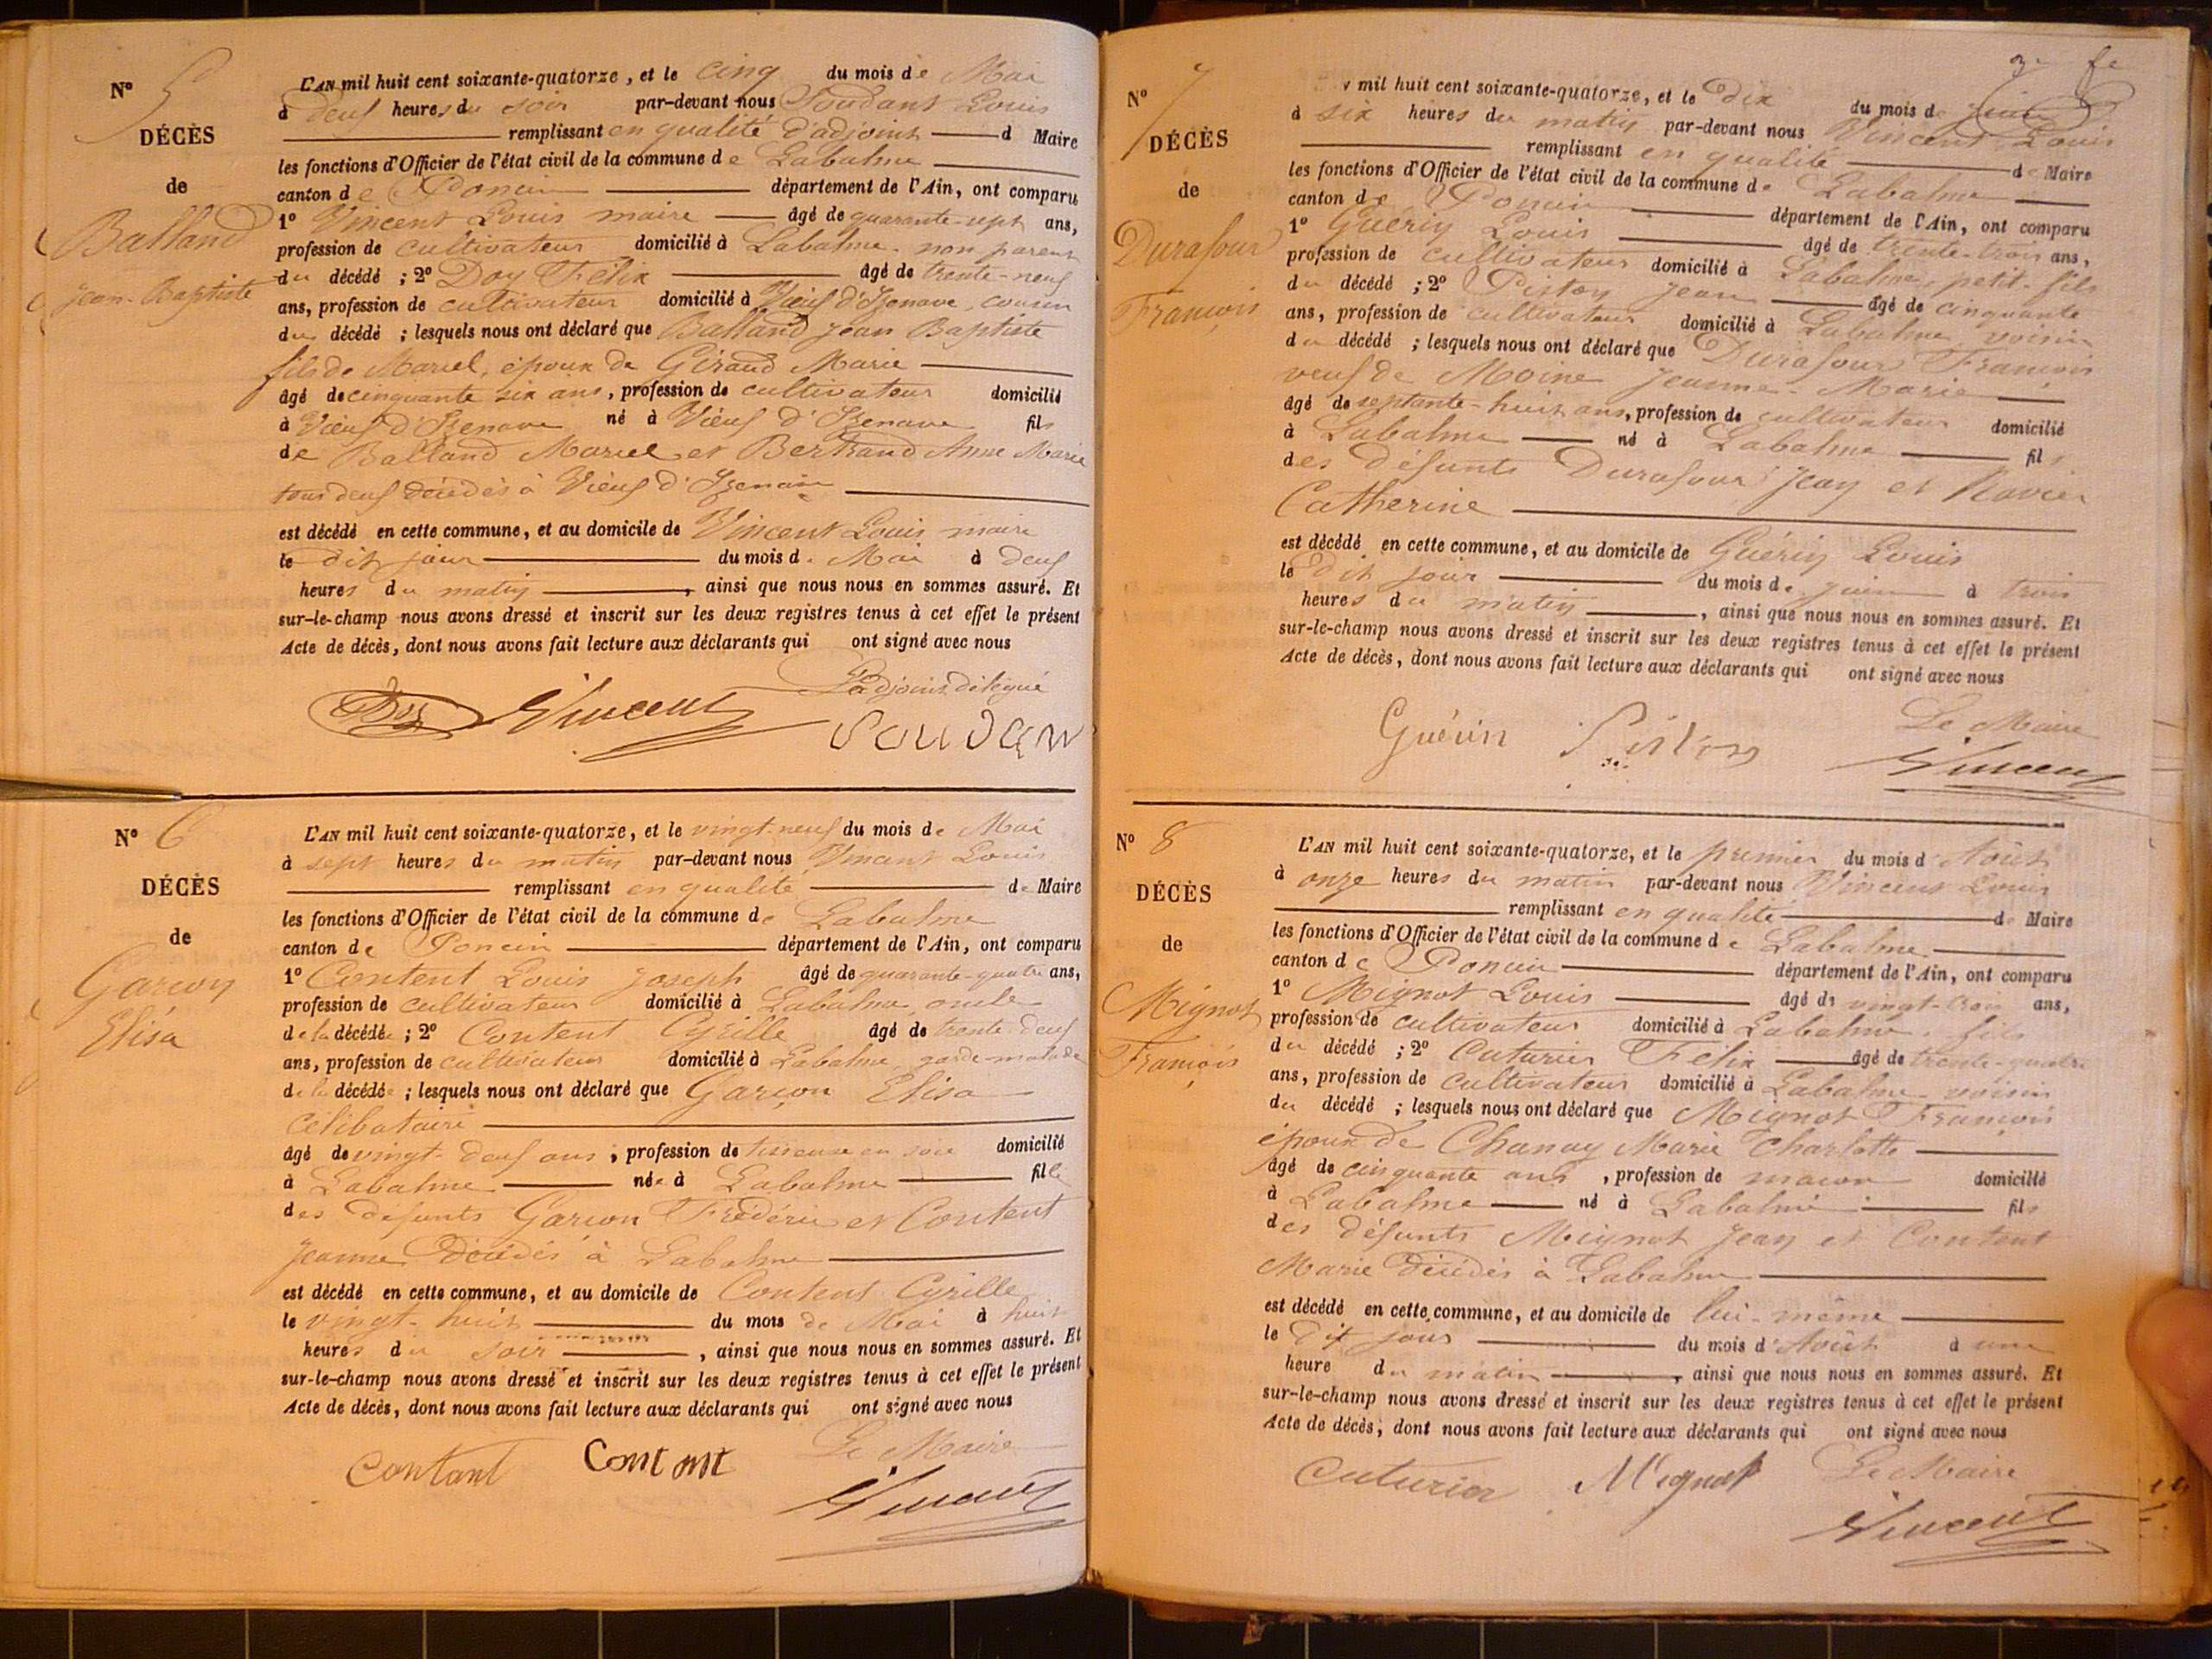 Nº 5
DÉCÈS
de
Balland
Jean-Baptiste
L'AN mil huit cent soixante-quatorze, et le cinq du mois de Mai
à deux heures du soir par-devant nous Soudant Louis
remplissant en qualité d'adjoint d Maire
les fonctions d'Officier de l'état civil de la commune de Labalme
canton de Poncin département de l'Ain, ont comparu
1º Vincent Louis maire âgé de quarante-sept ans,
profession de cultivateur domicilié à Labalme non parent
du décédé ; 2º Doy Félix âgé de trente-neuf
ans, profession de cultivateur domicilié à Vieux d'Izenave, cousin
du décédé ; lesquels nous ont déclaré que Balland Jean Baptiste
fils de Mariel, époux de Giraud Marie
âgé de cinquante six ans, profession de cultivateur domicilié
à Vieux d'Izenave né à Vieux d'Izenave fils
de Balland Mariel et Bertrand Anne Marie
tous deux décédés à Vieux d'Izenave
est décédé en cette commune, et au domicile de Vincent Louis maire
le dit jour du mois de Mai à deux
heures du matin, ainsi que nous nous en sommes assuré. Et
sur-le-champ nous avons dressé et inscrit sur les deux registres tenus à cet effet le présent
Acte de décès, dont nous avons fait lecture aux déclarants qui ont signé avec nous
L'adjoint délégué
Doy Vincent Soudan
Nº 6
DÉCÈS
de
Garçon
Elisa
L'AN mil huit cent soixante-quatorze, et le vingt-neuf du mois de Mai
à sept heures du matin par-devant nous Vincent Louis
remplissant en qualité de Maire
les fonctions d'Officier de l'état civil de la commune de Labalme
canton de Poncin département de l'Ain, ont comparu
1º Content Louis Joseph âgé de quarante-quatre ans,
profession de cultivateur domicilié à Labalme, oncle
de la décédée ; 2º Content Cyrille âgé de trente-deux
ans, profession de cultivateur domicilié à Labalme, garde-malade
de la décédée ; lesquels nous ont déclaré que Garçon Elisa
Célibataire
âgé de vingt-deux ans ; profession de tisseuse en soie domicilié
à Labalme née à Labalme fille
des défunts Garçon Frédéric et Content
Jeanne Décédés à Labalme
est décédé en cette commune, et au domicile de Content Cyrille
le vingt-huit du mois de Mai à huit
heures du soir, ainsi que nous nous en sommes assuré. Et
sur-le-champ nous avons dressé et inscrit sur les deux registres tenus à cet effet le présent
Acte de décès, dont nous avons fait lecture aux déclarants qui ont signé avec nous
Le Maire
Contant Content Vincent
Nº 7
DÉCÈS
de
Durafour
François
mil huit cent soixante-quatorze, et le Dix du mois de juin
à six heures du matin par-devant nous Vincent Louis
remplissant en qualité de Maire
les fonctions d'Officier de l'état civil de la commune de Labalme
canton de Poncin département de l'Ain, ont comparu
1º Guérin Louis âgé de trente-trois ans,
profession de cultivateur domicilié à Labalme, petit-fils
du décédé ; 2º Piston Jean âgé de cinquante
ans, profession de cultivateur domicilié à Labalme voisin
du décédé ; lesquels nous ont déclaré que Durafour François
veuf de Moine Jeanne-Marie
âgé de septante-huit ans, profession de cultivateur domicilié
à Labalme né à Labalme fils
des défunts Durafour Jean et Ravier
Catherine
est décédé en cette commune, et au domicile de Guérin Louis
le dit jour du mois de juin à trois
heures du matin, ainsi que nous nous en sommes assuré. Et
sur-le-champ nous avons dressé et inscrit sur les deux registres tenus à cet effet le présent
Acte de décès, dont nous avons fait lecture aux déclarants qui ont signé avec nous
Le Maire
Guérin Piston Vincent
Nº 8
DÉCÈS
de
Mignot
François
L'AN mil huit cent soixante-quatorze, et le premier du mois d'Août
à onze heures du matin par-devant nous Vincent Louis
remplissant en qualité de Maire
les fonctions d'Officier de l'état civil de la commune de Labalme
canton de Poncin département de l'Ain, ont comparu
1º Mignot Louis âgé de vingt-trois ans,
profession de cultivateur domicilié à Labalme, fils
du décédé ; 2º Cuturier Félix âgé de trente-quatre
ans, profession de cultivateur domicilié à Labalme voisin
du décédé ; lesquels nous ont déclaré que Mignot François
époux de Chanay Marie Charlotte
âgé de cinquante ans, profession de maçon domicilié
à Labalme né à Labalme fils
des défunts Mignot Jean et Content
Marie Décédés à Labalme
est décédé en cette commune, et au domicile de lui-même
le dit jour du mois d'Août à une
heure du matin, ainsi que nous nous en sommes assuré. Et
sur-le-champ nous avons dressé et inscrit sur les deux registres tenus à cet effet le présent
Acte de décès, dont nous avons fait lecture aux déclarants qui ont signé avec nous
Cuturier Mignot Le Maire
Vincent